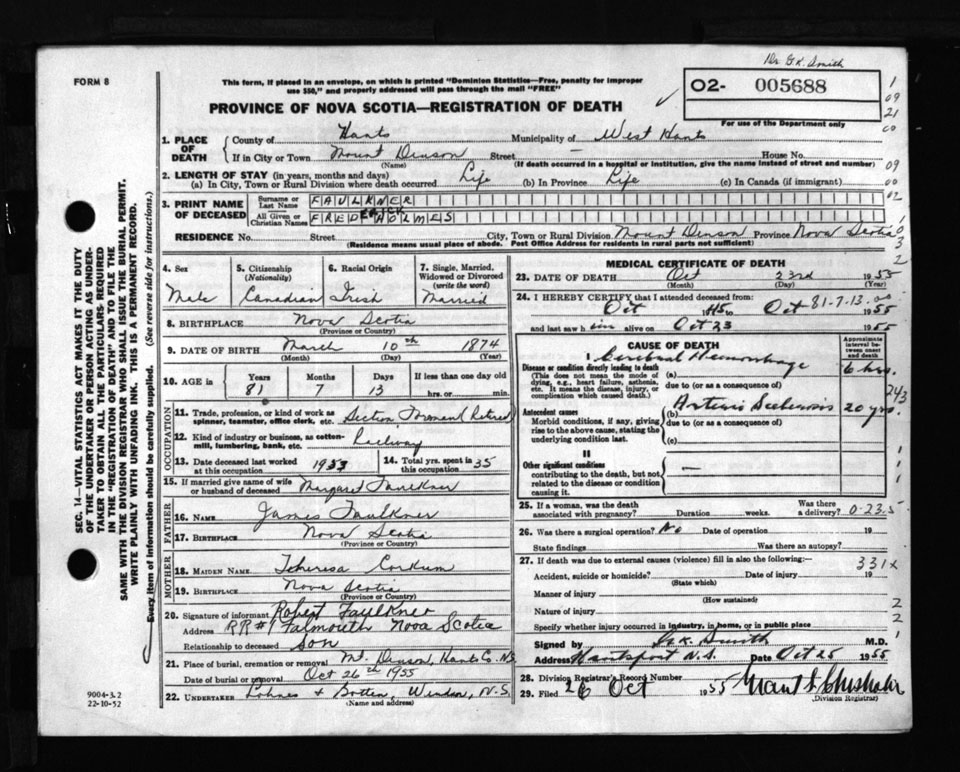 Dr G.K. Smith
FORM 8
This form, if placed in an envelope, on which is printed "Dominion Statistics—Free, penalty for improper
use $50," and properly addressed will pass through the mail "FREE"
PROVINCE OF NOVA SCOTIA—REGISTRATION OF DEATH
O2- 005688
For use of the Department only
1
09
21
00
09
00
02
1. PLACE OF DEATH
County of Hants Municipality of West Hants
If in City or Town Mount Denson Street — House No.
(Name) (If death occurred in a hospital or institution, give the name instead of street and number)
2. LENGTH OF STAY (in years, months and days)
(a) In City, Town or Rural Division where death occurred Life (b) In Province Life (c) In Canada (if immigrant)
3. PRINT NAME OF DECEASED
Surname or Last Name FAULKNER
All Given or Christian Names FREDERICK HOLMES
RESIDENCE No. Street City, Town or Rural Division Mount Denson Province Nova Scotia
(Residence means usual place of abode. Post Office Address for residents in rural parts not sufficient)
4. Sex
Male
5. Citizenship
(Nationality)
Canadian
6. Racial Origin
Irish
7. Single, Married, Widowed or Divorced
(write the word)
Married
8. BIRTHPLACE Nova Scotia
(Province or Country)
9. DATE OF BIRTH March 10th 1874
(Month) (Day) (Year)
10. AGE in
Years Months Days If less than one day old
81 7 13 hrs. or min.
OCCUPATION
11. Trade, profession, or kind of work as spinner, teamster, office clerk, etc. Section Foreman Retired
12. Kind of industry or business, as cotton-mill, lumbering, bank, etc. Railway
13. Date deceased last worked at this occupation 1933
14. Total yrs. spent in this occupation 35
15. If married give name of wife or husband of deceased Margaret Faulkner
FATHER
16. NAME James Faulkner
17. BIRTHPLACE Nova Scotia
(Province or Country)
MOTHER
18. MAIDEN NAME Theresa Corkum
19. BIRTHPLACE Nova Scotia
(Province or Country)
20. Signature of informant Robert Faulkner
Address RR#1 Falmouth Nova Scotia
Relationship to deceased Son
21. Place of burial, cremation or removal Mt. Denson, Hants Co. N.S.
Date of burial or removal Oct 26th 1955
22. UNDERTAKER Lohnes & Botten, Windsor, N.S.
(Name and address)
MEDICAL CERTIFICATE OF DEATH
23. DATE OF DEATH Oct 23rd 1955
(Month) (Day) (Year)
24. I HEREBY CERTIFY that I attended deceased from:
81-7-13.00
Oct to Oct 1955
and last saw him alive on Oct 23 1955
CAUSE OF DEATH
Approximate interval between onset and death
I
Disease or condition directly leading to death
(This does not mean the mode of dying, e.g., heart failure, asthenia, etc. It means the disease, injury, or complication which caused death.)
(a) Cerebral Hemorrhage 6 hrs.
due to (or as a consequence of)
Antecedent causes
Morbid conditions, if any, giving rise to the above cause, stating the underlying condition last.
(b) Arterio Sclerosis 20 yrs.
due to (or as a consequence of)
(c)
II
Other significant conditions
contributing to the death, but not related to the disease or condition causing it.
—
25. If a woman, was the death associated with pregnancy? Duration weeks. Was there a delivery? 0-23.5
26. Was there a surgical operation? No Date of operation 19
State findings Was there an autopsy?
27. If death was due to external causes (violence) fill in also the following:— 331x
Accident, suicide or homicide? Date of injury 19
(State which)
Manner of injury
(How sustained)
Nature of injury
Specify whether injury occurred in industry, in home, or in public place
Signed by G.K. Smith M.D.
Address Hantsport N.S. Date Oct 25 1955
28. Division Registrar's Record Number
29. Filed 26 Oct 1955
(Division Registrar)
SEC. 14—VITAL STATISTICS ACT MAKES IT THE DUTY
OF THE UNDERTAKER OR PERSON ACTING AS UNDER-
TAKER TO OBTAIN ALL THE PARTICULARS REQUIRED
IN THE "REGISTRATION OF DEATH" AND TO FILE THE
SAME WITH THE DIVISION REGISTRAR WHO SHALL ISSUE THE BURIAL PERMIT.
WRITE PLAINLY WITH UNFADING INK. THIS IS A PERMANENT RECORD.
Every item of information should be carefully supplied. (See reverse side for instructions.)
9004-3.2
22-10-52